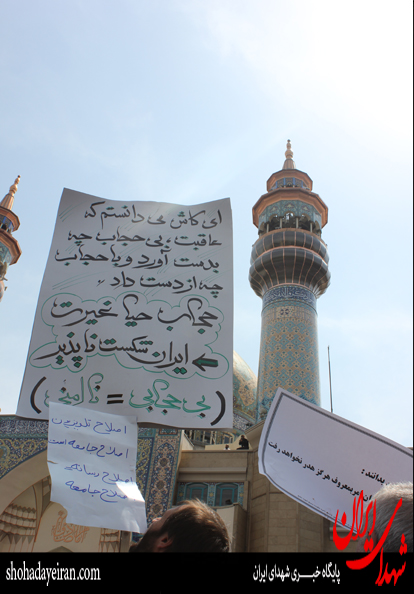 ای کاش می دانستم که
عاقبت، بی حجاب چه
بدست آورد و با حجاب
چه از دست داد.
حجاب حیا غیرت
ایران شکست ناپذیر
(بی حجابی = ناامنی)
اصلاح تلویزیون
اصلاح جامعه است
اصلاح رسانه
اصلاح جامعه
بدانند:
معروف هرگز هدر نخواهد رفت
شهدای ایران
پایگاه خبـری شهدای ایران
shohadayeiran.com